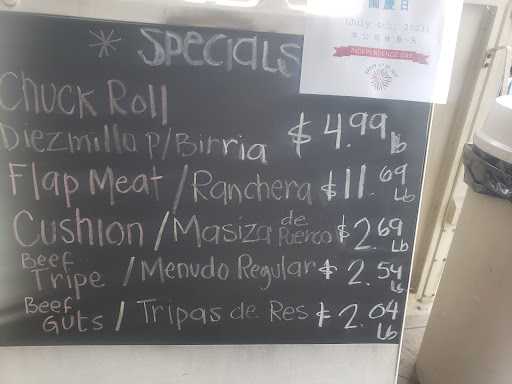 國慶日
(July 4th, 2023)
本公司休息一天
INDEPENDENCE DAY
* Specials
Chuck Roll
Diezmillo p/Birria $4.99 lb
Flap Meat / Ranchera $11.69 Lb
Cushion / Masiza de Puerco $2.69 Lb
Beef Tripe / Menudo Regular $2.54 Lb
Beef Guts / Tripas de Res $2.04 Lb